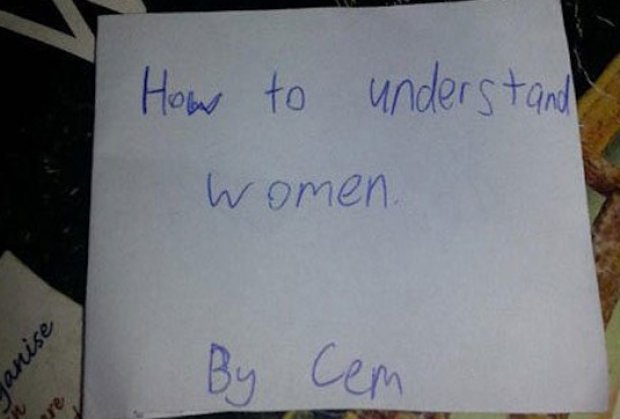 How to understand
women.
By Cem
ganise